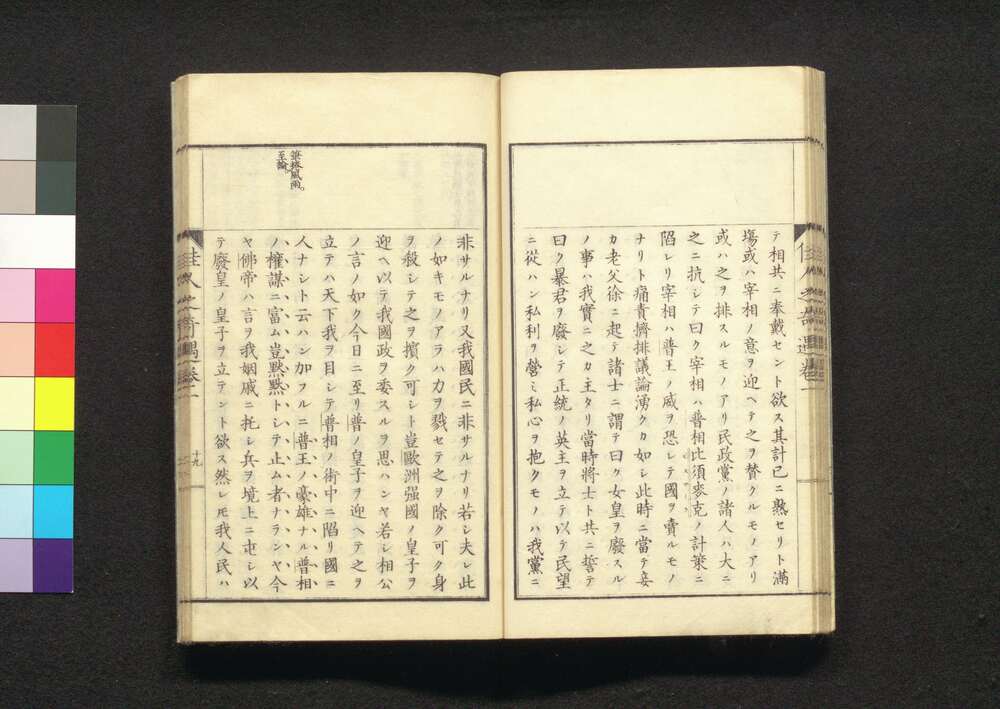 テ相共ニ奉戴セント欲ス其計已ニ熟セリト滿
塲或ハ宰相ノ意ヲ迎ヘテ之ヲ賛クルモノアリ
或ハ之ヲ排スルモノアリ民政黨ノ諸人ハ大ニ
之ニ抗シテ曰ク宰相ハ普相比須麥克ノ計策ニ
陷レリ宰相ハ普王ノ威ヲ恐レテ國ヲ賣ルモノ
ナリト痛責擠排議論湧クカ如シ此時ニ當テ妾
カ老父徐ニ起テ諸士ニ謂テ曰ク女皇ヲ廢スル
ノ事ハ我實ニ之カ主タリ當時將士ト共ニ誓テ
曰ク暴君ヲ廢シテ正統ノ英主ヲ立テ以テ民望
ニ從ハン私利ヲ營ミ私心ヲ抱クモノハ我黨ニ
非サルナリ又我國民ニ非サルナリ若シ夫レ此
ノ如キモノアラハ力ヲ戮セテ之ヲ除ク可ク身
ヲ殺シテ之ヲ擯ク可シト豈歐洲强國ノ皇子ヲ
迎ヘ以テ我國政ヲ委スルヲ思ハンヤ若シ相公
ノ言ノ如ク今日ニ至リ普ノ皇子ヲ迎ヘテ之ヲ
立テハ天下我ヲ目シテ普相ノ術中ニ陷リ國ニ
人ナシト云ハン加フルニ普王ノ豪雄ナル普相
ノ權謀ニ富ム豈黙黙トシテ止ム者ナランヤ今
ヤ佛帝ハ言ヲ我姻戚ニ托シ兵ヲ境上ニ屯シ以
テ廢皇ノ皇子ヲ立テント欲ス然レモ我人民ハ
筆挾風雨。
至論。
佳人之奇遇 卷二
十九